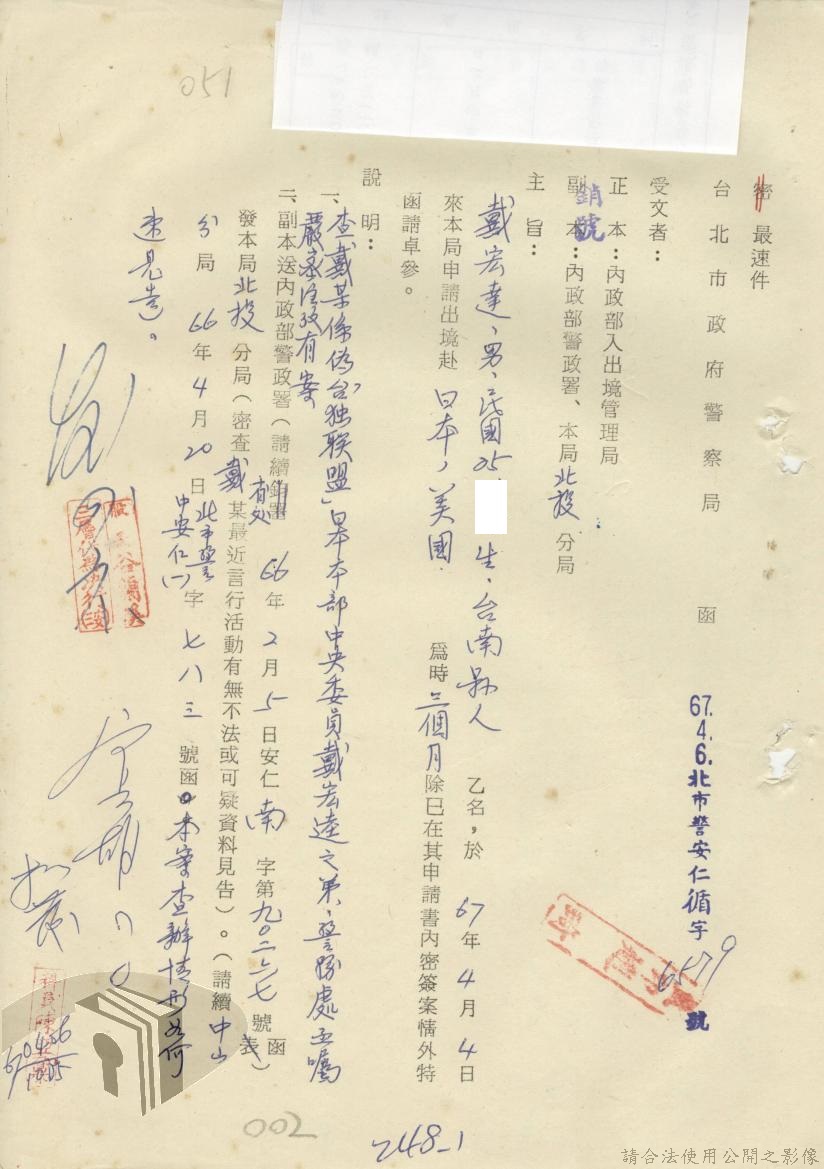 051
密 最速件
台北市政府警察局 函
67.4.6.北市警安仁循字 6579 號
受文者：
正本：內政部入出境管理局
副本：內政部警政署、本局北投分局
銷號
主旨：
戴宏達、男、民國25 生、台南縣人 乙名，於 67年4月4日
來本局申請出境赴 日本、美國 為時三個月除已在其申請書內密簽案情外特
函請卓參。
說明：
一、查戴某係偽「台独联盟」日本本部中央委員戴宏逵之弟、警勝處函囑
嚴密注攷有案
二、副本送內政部警政署（請續 66年2月5日安仁南字第九〇二六七號函）
發本局北投分局（密查戴某最近言行活動有無不法或可疑資料見告）。（請續中山
分局 66年4月20日北市警中安仁(一)字七八三號函。本案查辦情形如何
速見告。
002
248-1
請合法使用公開之影像